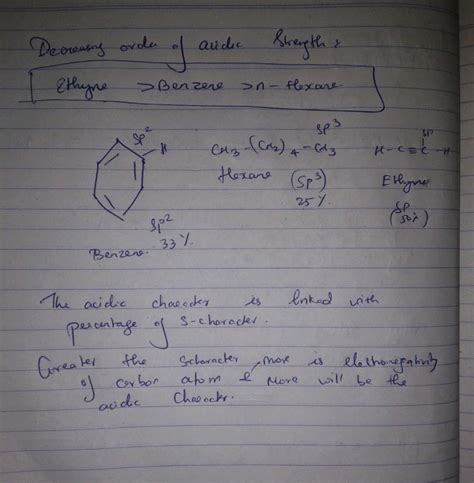 Decreasing order of acidic Strength :
Ethyne > Benzene > n - Hexane
Sp2
H
Sp2
33 %
Benzene.
Sp3
CH3 - (CH2)4 - CH3
Hexane (Sp3)
25 %
Sp
H - C ≡ C - H
Ethyne
(Sp
50%)
The acidic character is linked with
percentage of S-character.
Greater the Scharacter, more is electronegativity
of carbon atom & more will be the
acidic character.